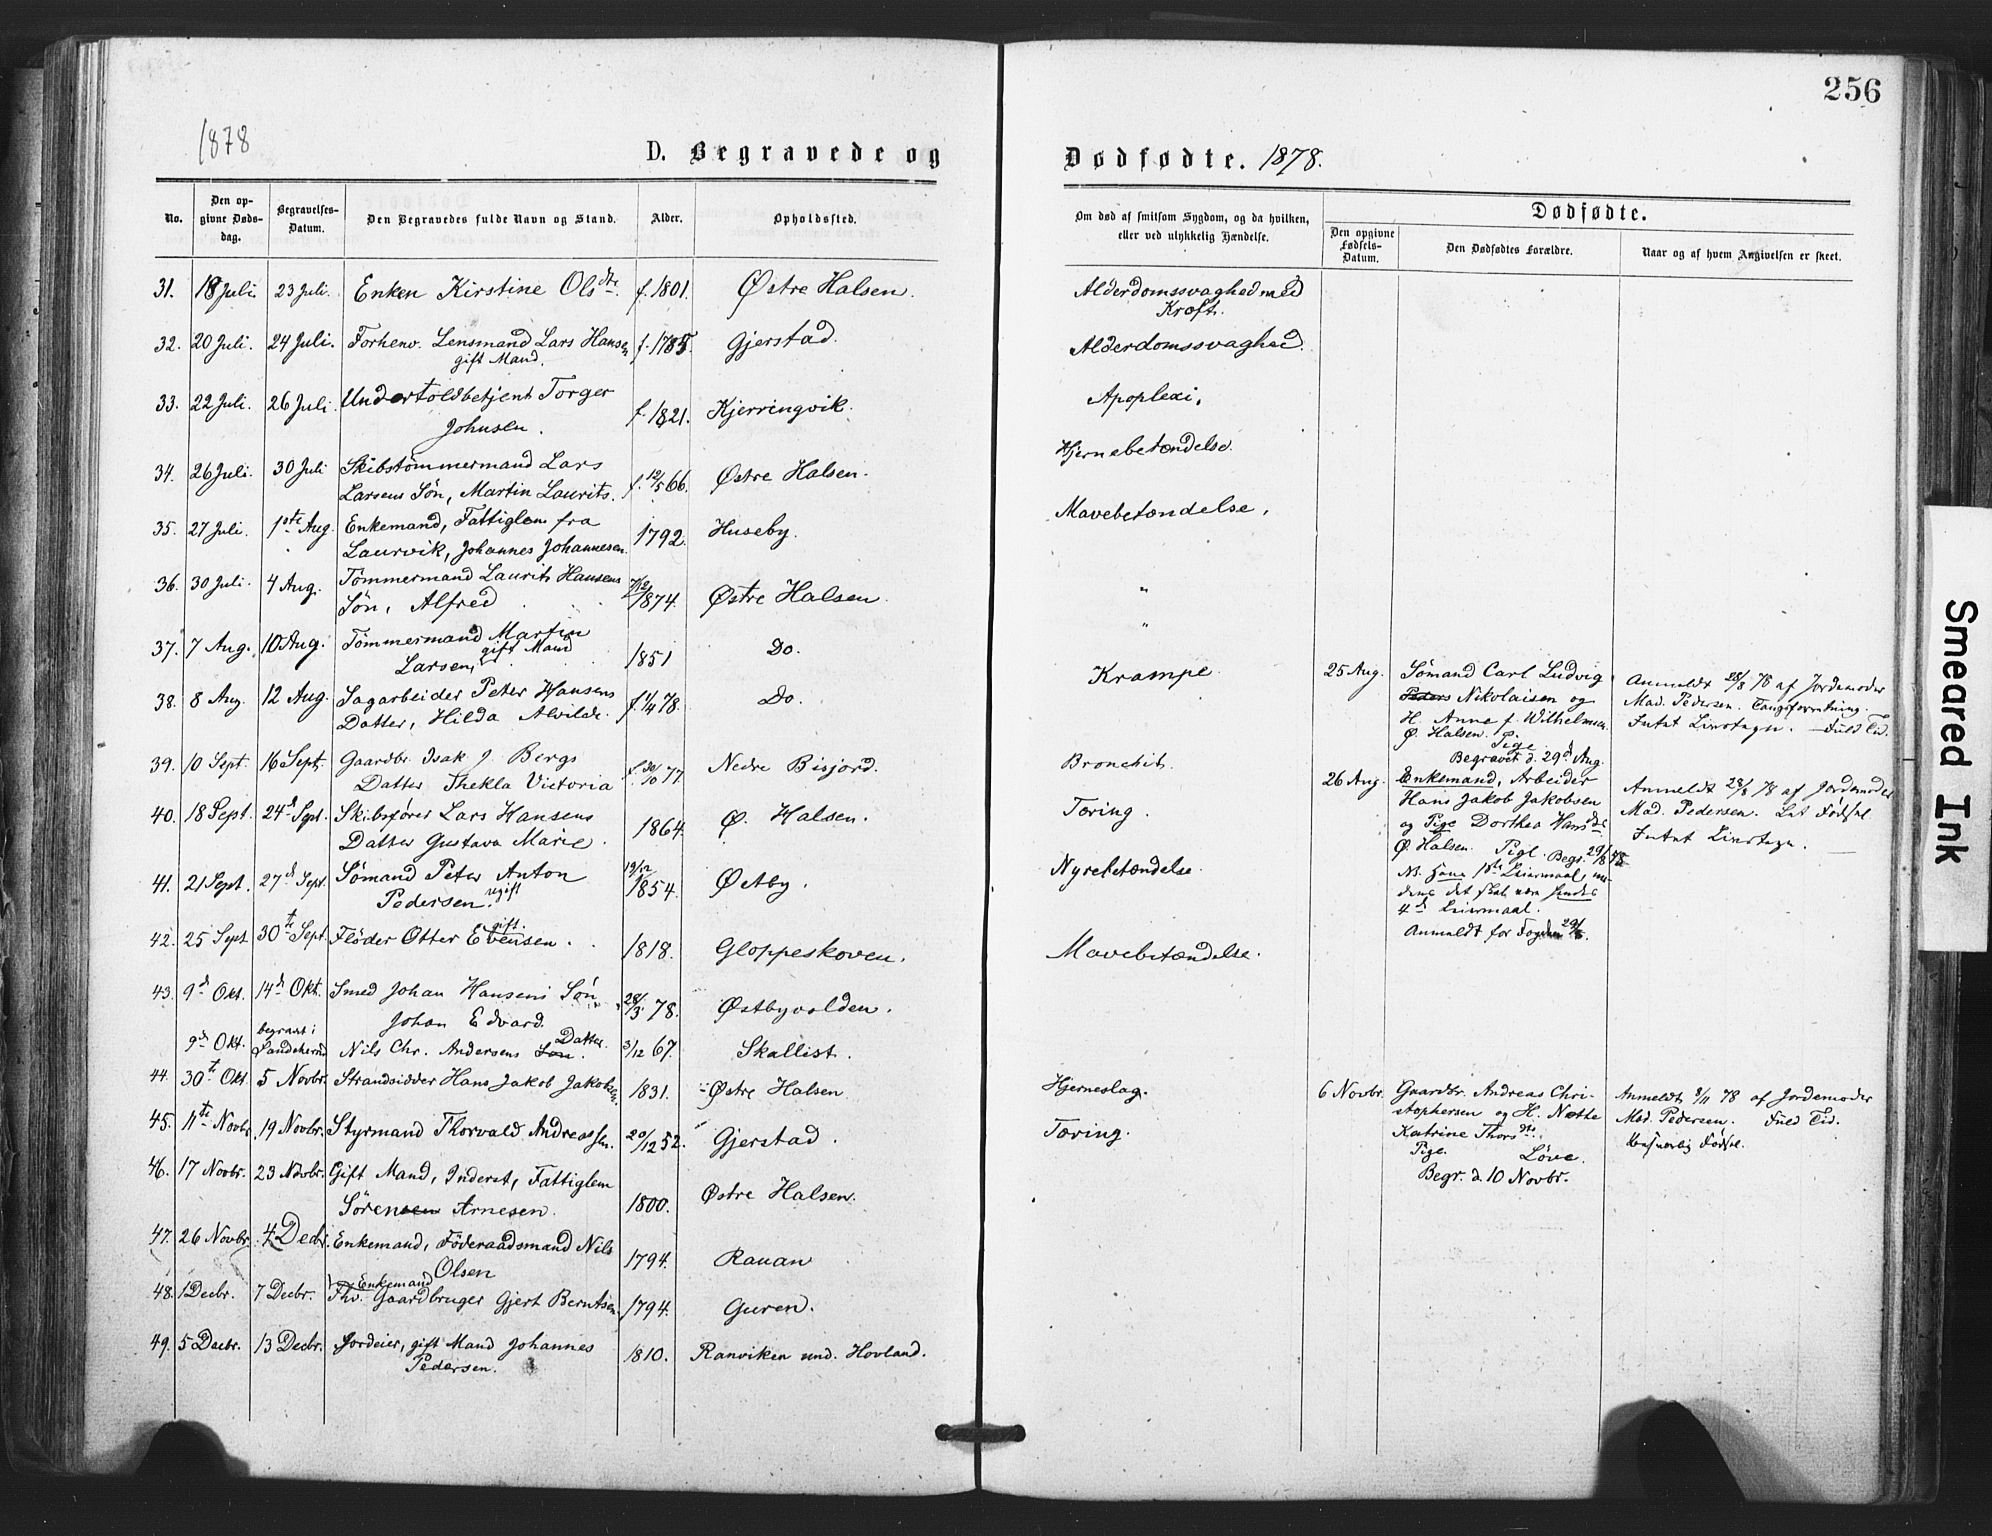 256
1878
D. Begravede og
Dødfødte. 1878.
No.
Den opgivne Dødsdag.
Begravelses-Datum.
Den Begravedes fulde Navn og Stand.
Alder.
Opholdssted.
Om død af smitsom Sygdom, og da hvilken,
eller ved ulykkelig Hændelse.
Dødfødte.
Den opgivne Fødsels-Datum.
Den Dødfødtes Forældre.
Naar og af hvem Angivelsen er skeet.
31. 18 Juli. 23 Juli. Enken Kirstine Olsdtr. f. 1801. Østre Halsen. Alderdomssvaghed med
Kræft.
32. 20 Juli. 24 Juli. Forhenv. Lensmand Lars Hansen f. 1785. Gjerstad. Alderdomssvaghed.
gift Mand.
33. 22 Juli. 26 Juli. Undertoldbetjent Torger f. 1821. Kjerringvik. Apoplexi.
Johnsen.
34. 26 Juli. 30 Juli Skibstømmermand Lars f. 12/5 66. Østre Halsen. Hjernebetændelse.
Larsens Søn, Martin Laurits.
35. 27 Juli. 1ste Aug. Enkemand, Fattiglem fra 1792. Huseby. Mavebetændelse.
Laurvik, Johannes Johannesen.
36. 30 Juli. 4 Aug. Tømmermand Laurits Hansens 1874. Østre Halsen. "
Søn, Alfred
37. 7 Aug. 10 Aug. Tømmermand Martin 1851 Do. "
gift Mand
Larsen,
38. 8 Aug. 12 Aug. Sagarbeider Peter Hansens f. 1/4 78. Do. Krampe.
Datter, Hilda Alvilde.
39. 10 Sept. 16 Sept. Gaardbr. Isak J. Bergs f. 30/10 77 Nedre Bisjord. Bronchit.
Datter Thekla Victoria
40. 18 Sept. 24de Sept. Skibsfører Lars Hansens 1864. Ø. Halsen. Tæring.
Datter Gustava Marie.
41. 21 Sept. 27de Sept. Sømand Peter Anton 19/12 1854. Østby. Nyrebetændelse.
Pedersen. ugift
42. 25 Sept 30te Sept. Fløder Otter Evensen. gift. 1818. Gloppeskoven. Mavebetændelse.
43. 9de Okt. 14de Okt. Smed Johan Hansens Søn 28/3 78. Østbyvolden.
Johan Edvard.
9de Okt. begravet i Sandeherred Nils Chr. Andersens Søn. Datter. 3/12 67. Skallist.
44. 30te Okt. 5 Novbr. Strandsidder Hans Jakob Jakobsen. 1831. Østre Halsen Hjerneslag.
45. 11te Novbr. 19 Novbr. Styrmand Thorvald Andreassen. 20/12 52. Gjerstad. Tæring.
46. 17 Novbr. 23 Novbr. Gift Mand, Inderst, Fattiglem 1800. Østre Halsen.
Sørensen Arnesen.
47. 26 Novbr. 4 Decbr. Enkemand, Føderaadsmand Nils 1794. Rauan
Olsen
48. 1 Decbr. 7 Decbr. Fhv. Enkemand Gaardbruger Gjert Berntsen. 1794. Guren.
49. 5 Decbr. 13 Decbr. Jordeier, gift Mand Johannes 1810. Ranviken und. Hovland.
Pedersen.
25 Aug. Sømand Carl Ludvig
Peders Nikolaisen og
H. Anne f. Wilhelmsen
Ø. Halsen.
Pige.
Begravet d. 29de Aug.
Anmeldt 28/8 78 af Jordemoder
Mad. Pedersen. Tangforretning.
Intet Livstegn. Fuld Tid.
26 Aug. Enkemand, Arbeider
Hans Jakob Jakobsen
og Pige Dorthea Hansdtr.
Ø. Halsen. Pige. Begr. 29/8 78
NB. Hans 1ste Leiermaal,
dens det skal være hendes
4de Leiermaal.
Anmeldt for Fogden 29/8.
Anmeldt 28/8 78 af Jordemoder
Mad. Pedersen. Let Fødsel
Intet Livstegn.
6 Novbr. Gaardbr. Andreas Chri-
stophersen og H. Næthe
Katrine Thorsdtr.
Pige. Løve.
Begr. d. 10 Novbr.
Anmeldt 8/11 78 af Jordemoder
Mad. Pedersen. Fuld Tid.
Fødsel.
Smeared Ink